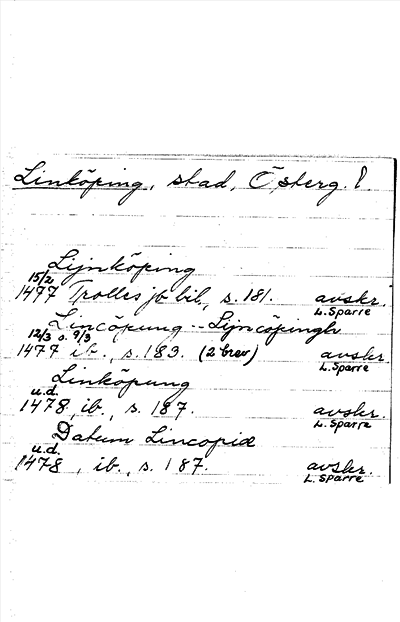 Linköping, stad, Österg. l
Lijnköping
15/2
1477 Trolles jb bib., s. 181. avskr.
L. Sparre
Lincöpung -- Lijncöpingh
12/3 o. 9/3
1477 ib., s. 183. (2 brev) avskr.
L. Sparre
Linköpung
u.d.
1478, ib., s. 187. avskr.
L. Sparre
Datum Lincopiæ
u.d.
1478, ib., s. 187. avskr.
L. Sparre